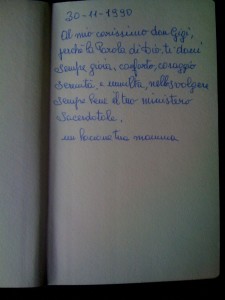 30-11-1990
Al mio carissimo don Gigi,
perché la Parola di Dio ti doni
sempre gioia, conforto, coraggio
serenità, e umiltà, nello svolgere
sempre bene il tuo ministero
Sacerdotale.
un bacione tua mamma